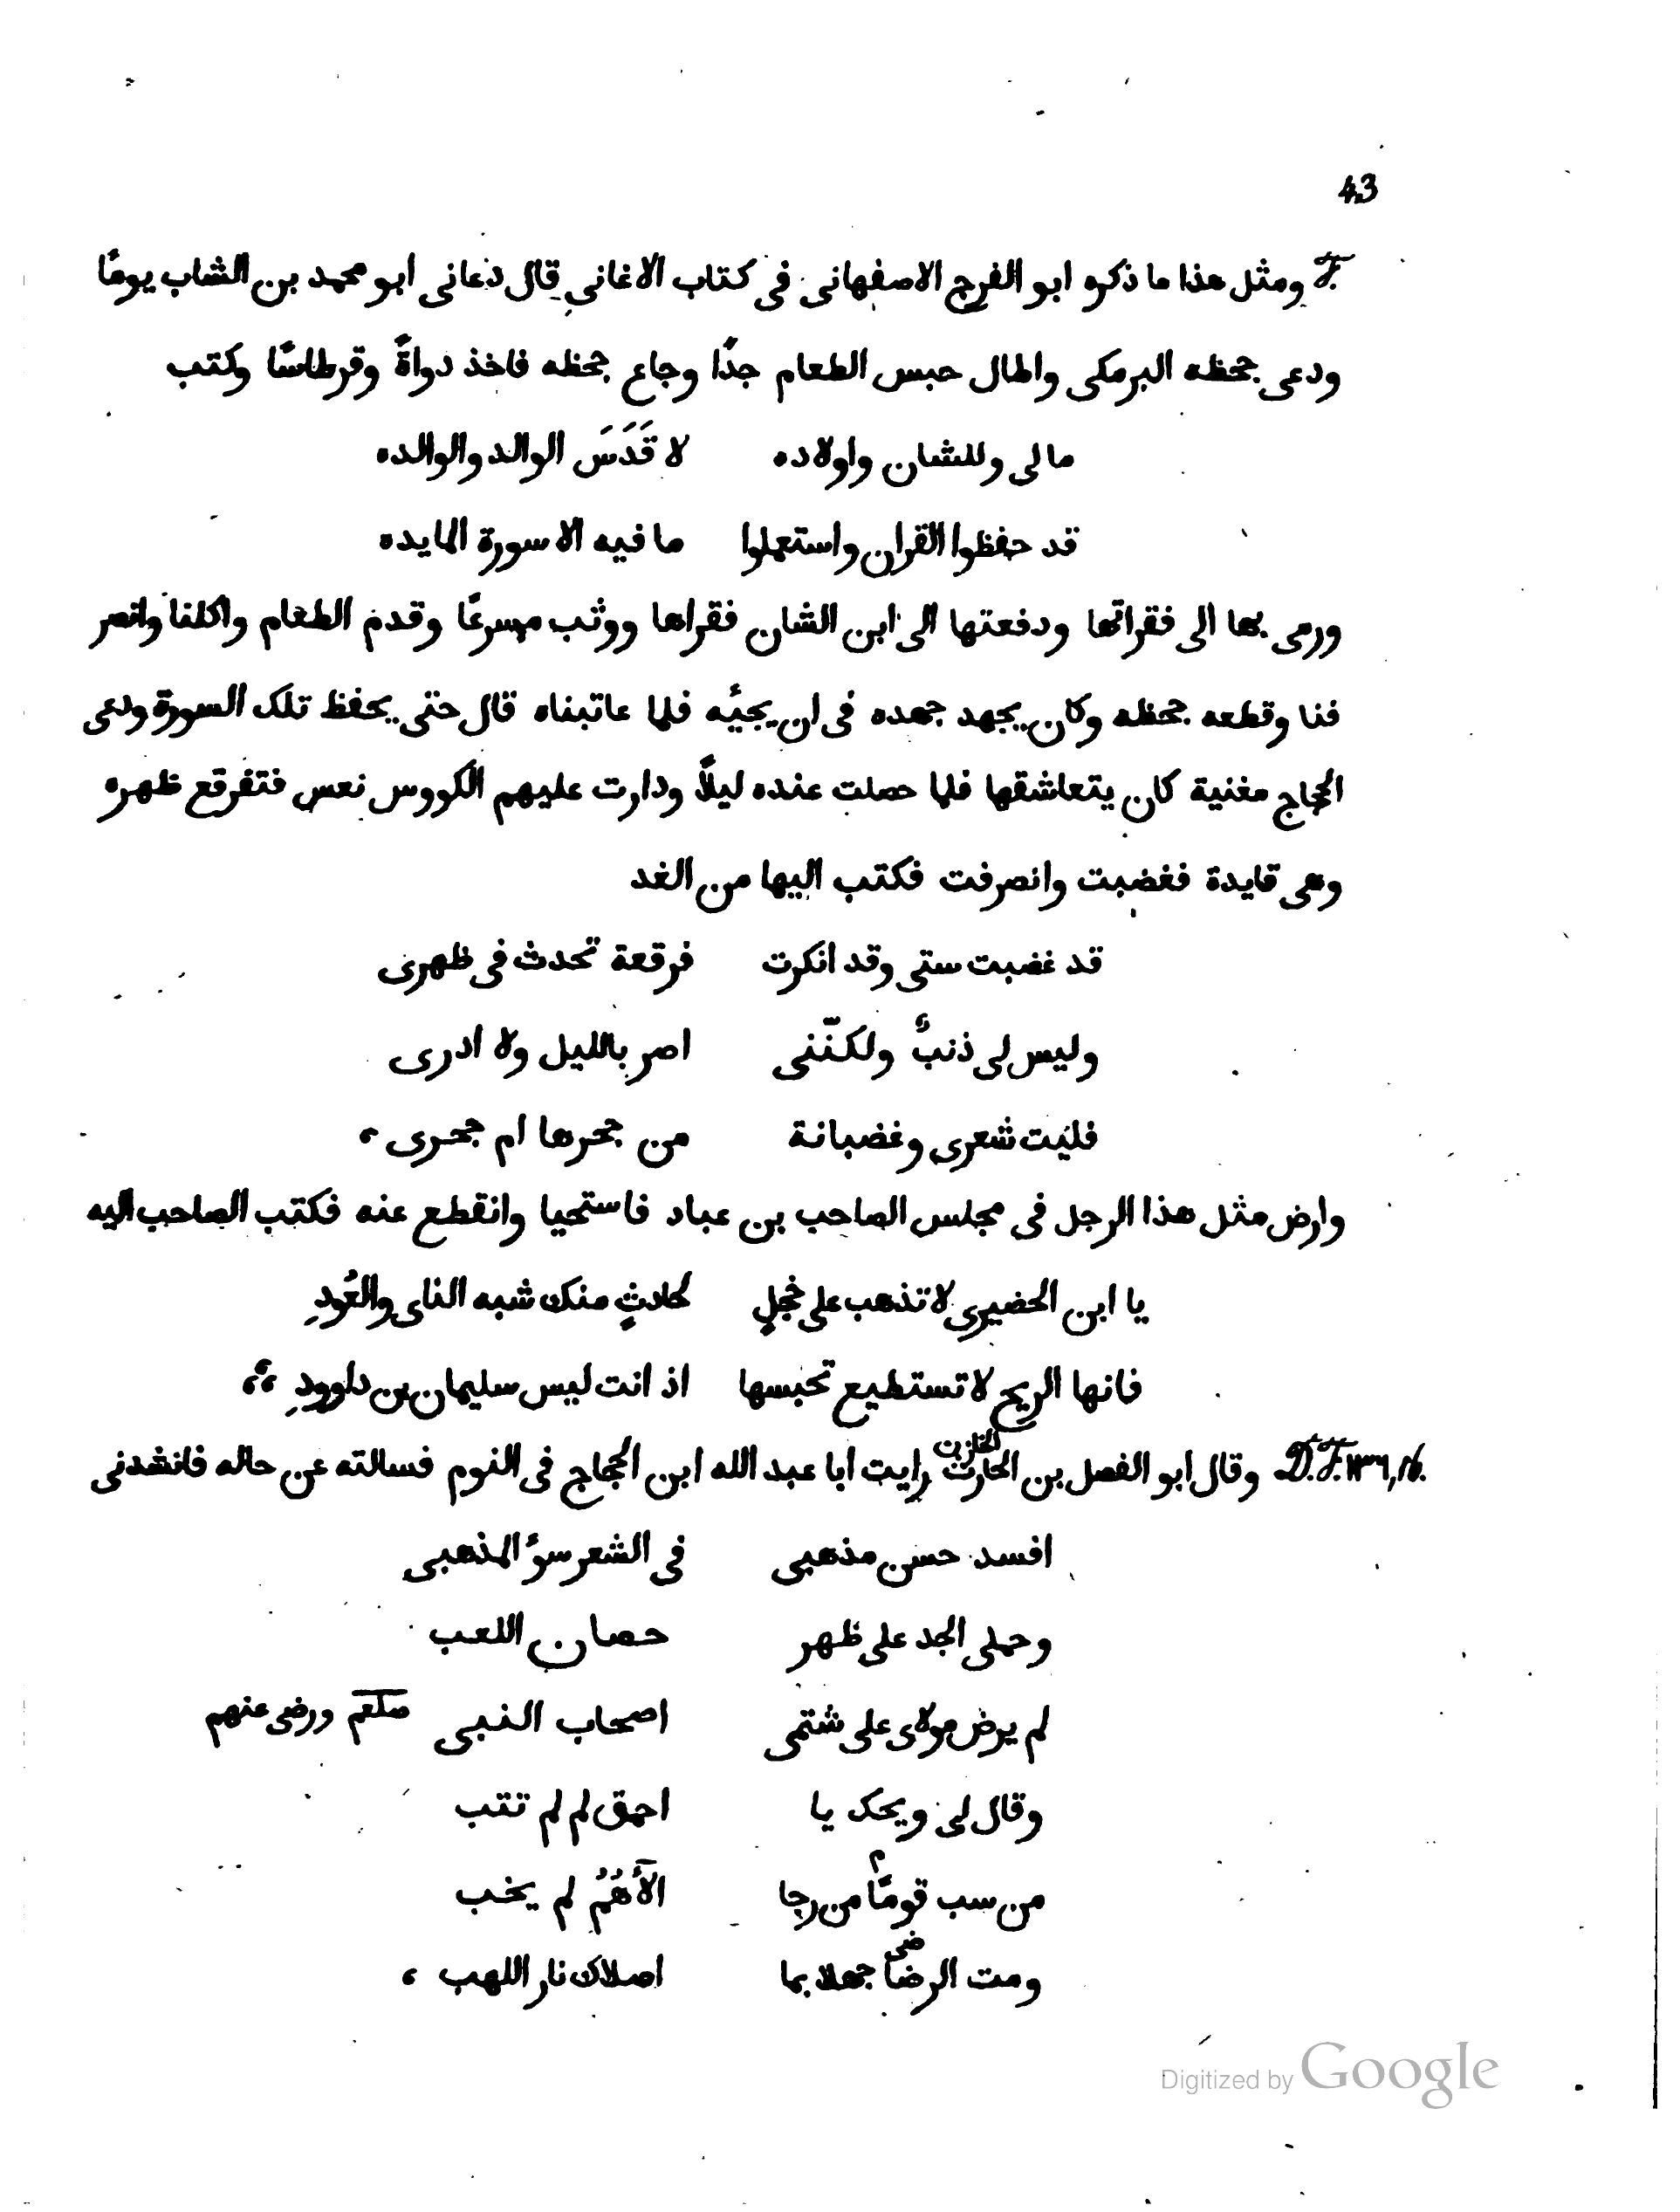 43
F. ومثل هذا ما ذكره ابو الفرج الاصفهانى فى كتاب الاغانى قال دعانى ابو محمد بن الشاب يومًا
ودعى جحظه البرمكى واطال حبس الطعام جدًا وجاع جحظه فاخذ دواةً وقرطاسًا وكتب
مالى وللشان واولاده لا قَدَسَ الوالد والوالده
قد حفظوا القران واستعملوا ما فيه الا سورة المايده
ورمى بها الى فقراتها ودفعتها الى ابن الشان فقراها ووثب مسرعًا وقدم الطعام واكلنا وانصر
فنا وقطعه جحظه وكان يجهد جهده فى ان يجئه فلما عاتبناه قال حتى يحفظ تلك السورة ودعى
الحجاج مغنية كان يتعاشقها فلما حصلت عنده ليلاً ودارت عليهم الكووس نعس فتفرقع ظهره
وهى قايدة فغضبت وانصرفت فكتب اليها من الغد
قد غضبت ستى وقد انكرت فرقعة تحدث فى ظهرى
وليس لى ذنبٌ ولكنّنى اصر بالليل ولا ادرى
فليت شعرى وغضبانة من جحرها ام جحرى ،
وارض مثل هذا الرجل فى مجلس الصاحب بن عباد فاستحيا وانقطع عنه فكتب الصاحب اليه
يا ابن الحضيرى لا تذهب على خجلٍ لحادثٍ منك شبه الناى والعُودِ
فانها الريح لا تستطيع تحبسها اذ انت ليس سليمان بن داوودِ ،،
D. F. ١٣٦, 16. وقال ابو الفصل بن الحارث الخازن رايت ابا عبد الله ابن الحجاج فى النوم فسالته عن حاله فانشدنى
افسد حسن مذهبى فى الشعر سوٴ المذهبى
وحملى الجد على ظهر حصان اللعب
لم يرض مولاى على شتمى اصحاب النبى صلعم ورضى عنهم
وقال لى ويحك يا احمق لم لم تتب
من سب قومًا من رجا الآهُمُ لم يخب
ومت الرضا ضى جهلا بما اصلاك نار اللهب ،
Digitized by Google